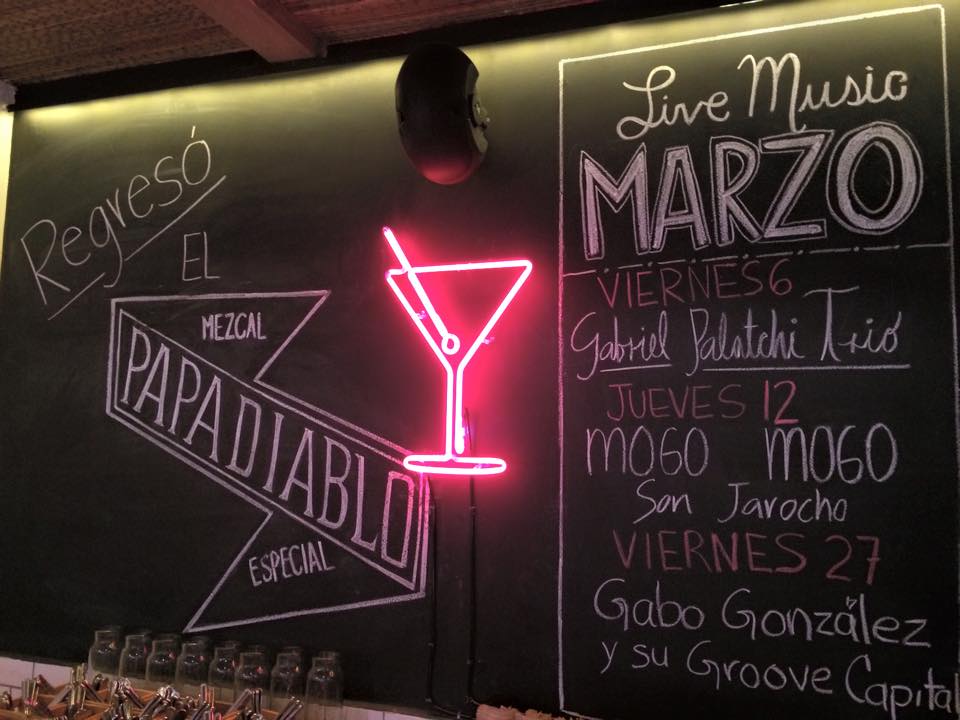 Regresó
EL
MEZCAL
PAPADIABLO
ESPECIAL
Live Music
MARZO
VIERNES 6
Gabriel Palatchi Trió
JUEVES 12
MOGO MOGO
Son Jarocho
VIERNES 27
Gabo González
y su Groove Capital